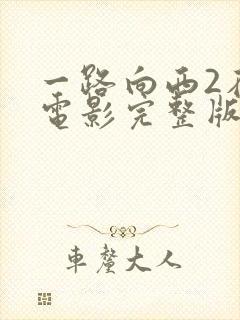 一路向西2在
電影完整版
車釐大人